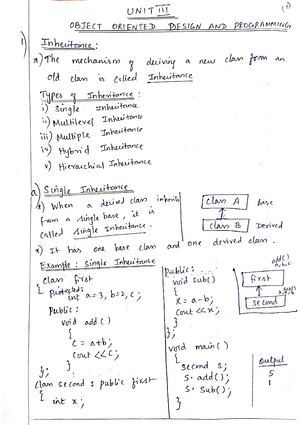 UNIT III
(1)
OBJECT ORIENTED DESIGN AND PROGRAMMING
1) Inheritance:
*) The mechanism of deriving a new class from an
old class is called Inheritance
Types of Inheritance:
i) Single Inheritance
ii) Multilevel Inheritance
iii) Multiple Inheritance
iv) Hybrid Inheritance
v) Hierarchial Inheritance
a) Single Inheritance
*) When a derived class inherits
from a single base, it is
called single Inheritance.
Class A Base
Class B Derived
*) It has one base class and one derived class.
Example: Single Inheritance
class first
{
Protected:
int a=3, b=2, c;
Public:
void add()
{
c = a+b;
cout << c;
}
};
class second : public first
{
int x;
Public:
void sub()
{
x = a-b;
cout << x;
}
};
void main()
{
second s;
s. add();
s. sub();
}
add()
a, b, c
first
second
output
5
1